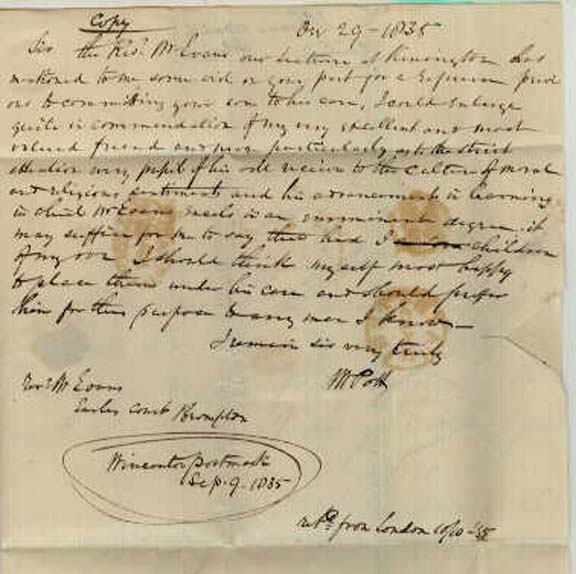 Copy
Oct 29 - 1835
Sir the Revd. Mr Evans our Lecturer at Kensington has
mentioned to me some wish on your part for a reference previ
ous to committing your son to his care, I could enlarge
quite in commendation of my very excellent and most
valued friend and more particularly as to the strict
attention every pupil of his receives to the culture of moral
and religious sentiments and his advancement in learning
in which Mr Evans excels in an degree. it
may suffice for me to say that had I children
of my own I should think myself most happy
to place them under his care and should prefer
him for this purpose to any man I know -
I remain sir very truly
J Pott
Revd. Mr Evans
Earles Court Brompton
Wincanton postmark
Sep. 9. 1835
from London